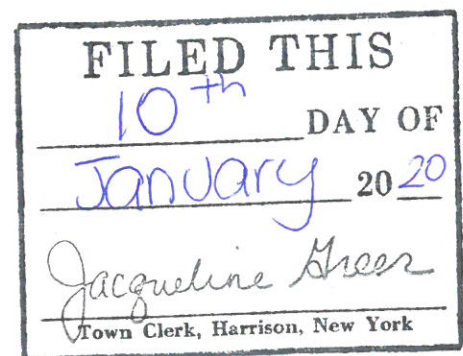 FILED THIS
10th DAY OF
January 2020
Jacqueline Greer
Town Clerk, Harrison, New York